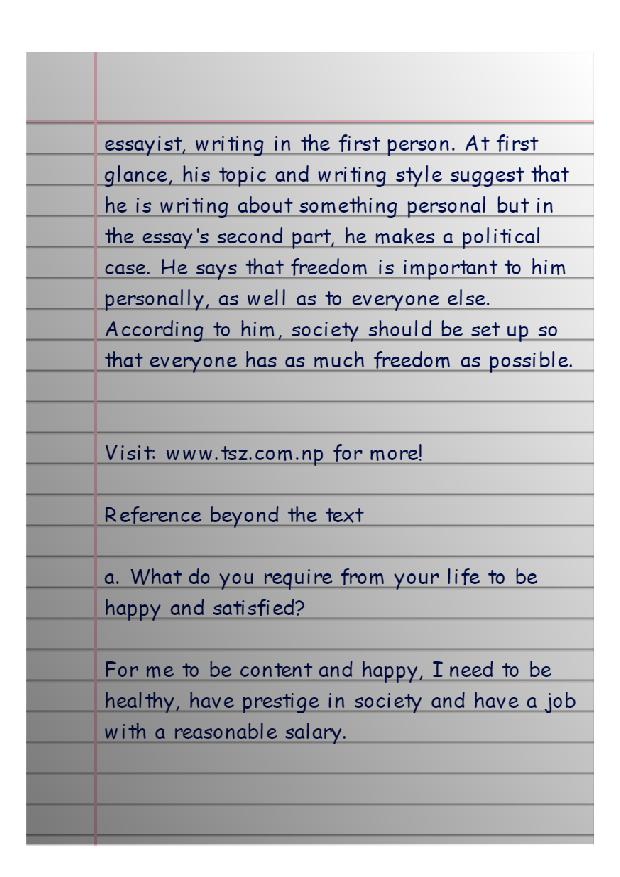 essayist, writing in the first person. At first
glance, his topic and writing style suggest that
he is writing about something personal but in
the essay's second part, he makes a political
case. He says that freedom is important to him
personally, as well as to everyone else.
According to him, society should be set up so
that everyone has as much freedom as possible.
Visit: www.tsz.com.np for more!
Reference beyond the text
a. What do you require from your life to be
happy and satisfied?
For me to be content and happy, I need to be
healthy, have prestige in society and have a job
with a reasonable salary.